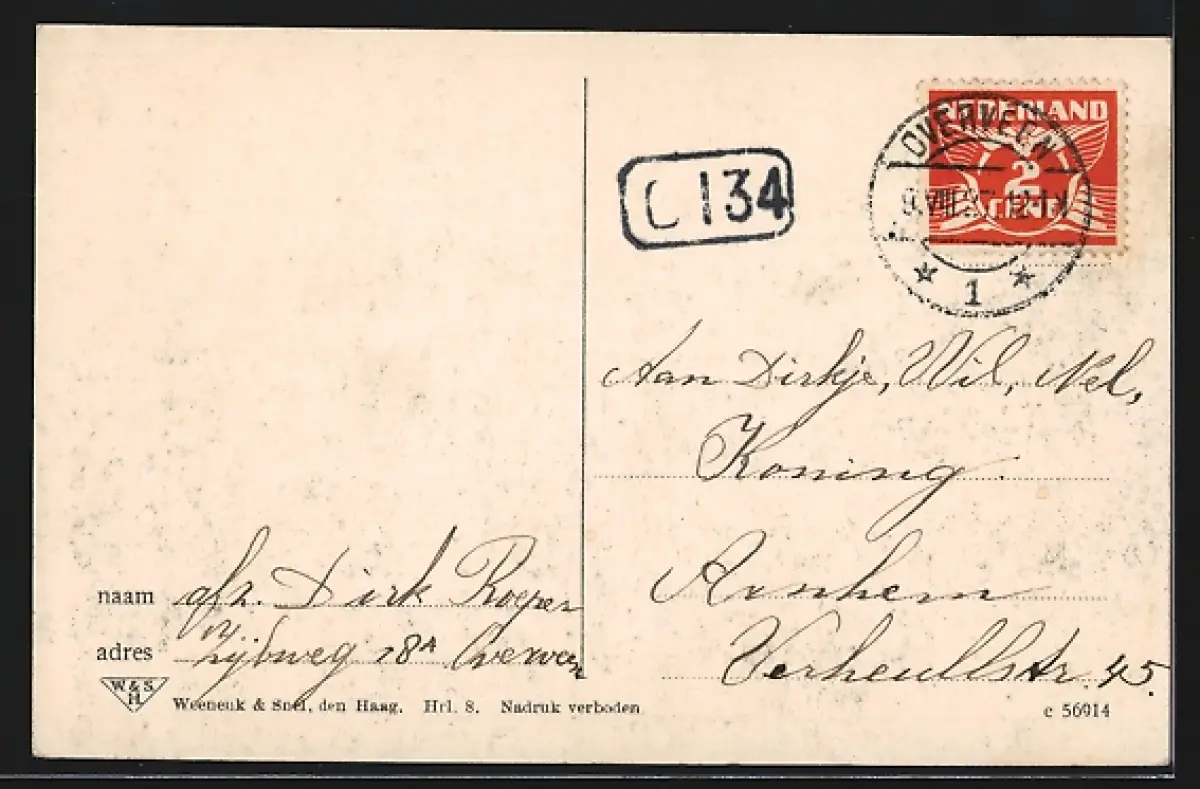 C 134
NEDERLAND
2
CENT
OVERVEEN
9.VIII. 12-1
1
Aan Dirkje, Wil, Nel,
Koning
Arnhem
Verheullstr. 45.
naam afz. Dirk Roeper
adres Zijlweg 18A Overveen
W & S
H
Weeneuk & Snel, den Haag. Hrl. 8. Nadruk verboden
c 56914